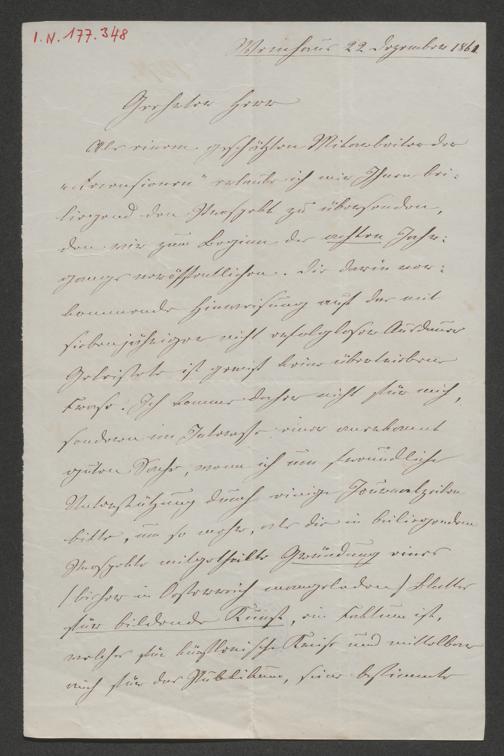 I. N. 177.348
Weinhaus 22 Dezember 1861
Geehrter Herr
Als einem geschätzten Mitarbeiter der
„Recensionen" erlaube ich mir Ihnen bei-
liegend den Prospekt zu übersenden,
den wir zum Beginn des achten Jahr-
gangs veröffentlichen. Die darin vor-
kommende Hinweisung auf das mit
siebenjähriger nicht erfolgloser Ausdauer
Geleistete ist gewiß keine übertriebene
Frase. Ich komme daher nicht für mich,
sondern im Interesse einer anerkannt
guten Sache, wenn ich um freundliche
Unterstützung durch einige Journalzeilen
bitte, um so mehr, als die in beiliegendem
Prospekte mitgetheilte Gründung eines
/ bisher in Oesterreich mangelnden / Blattes
für bildende Kunst, ein Faktum ist,
welches für künstlerische Kreise und mittelbar
auch für das Publikum, eine bestimmte